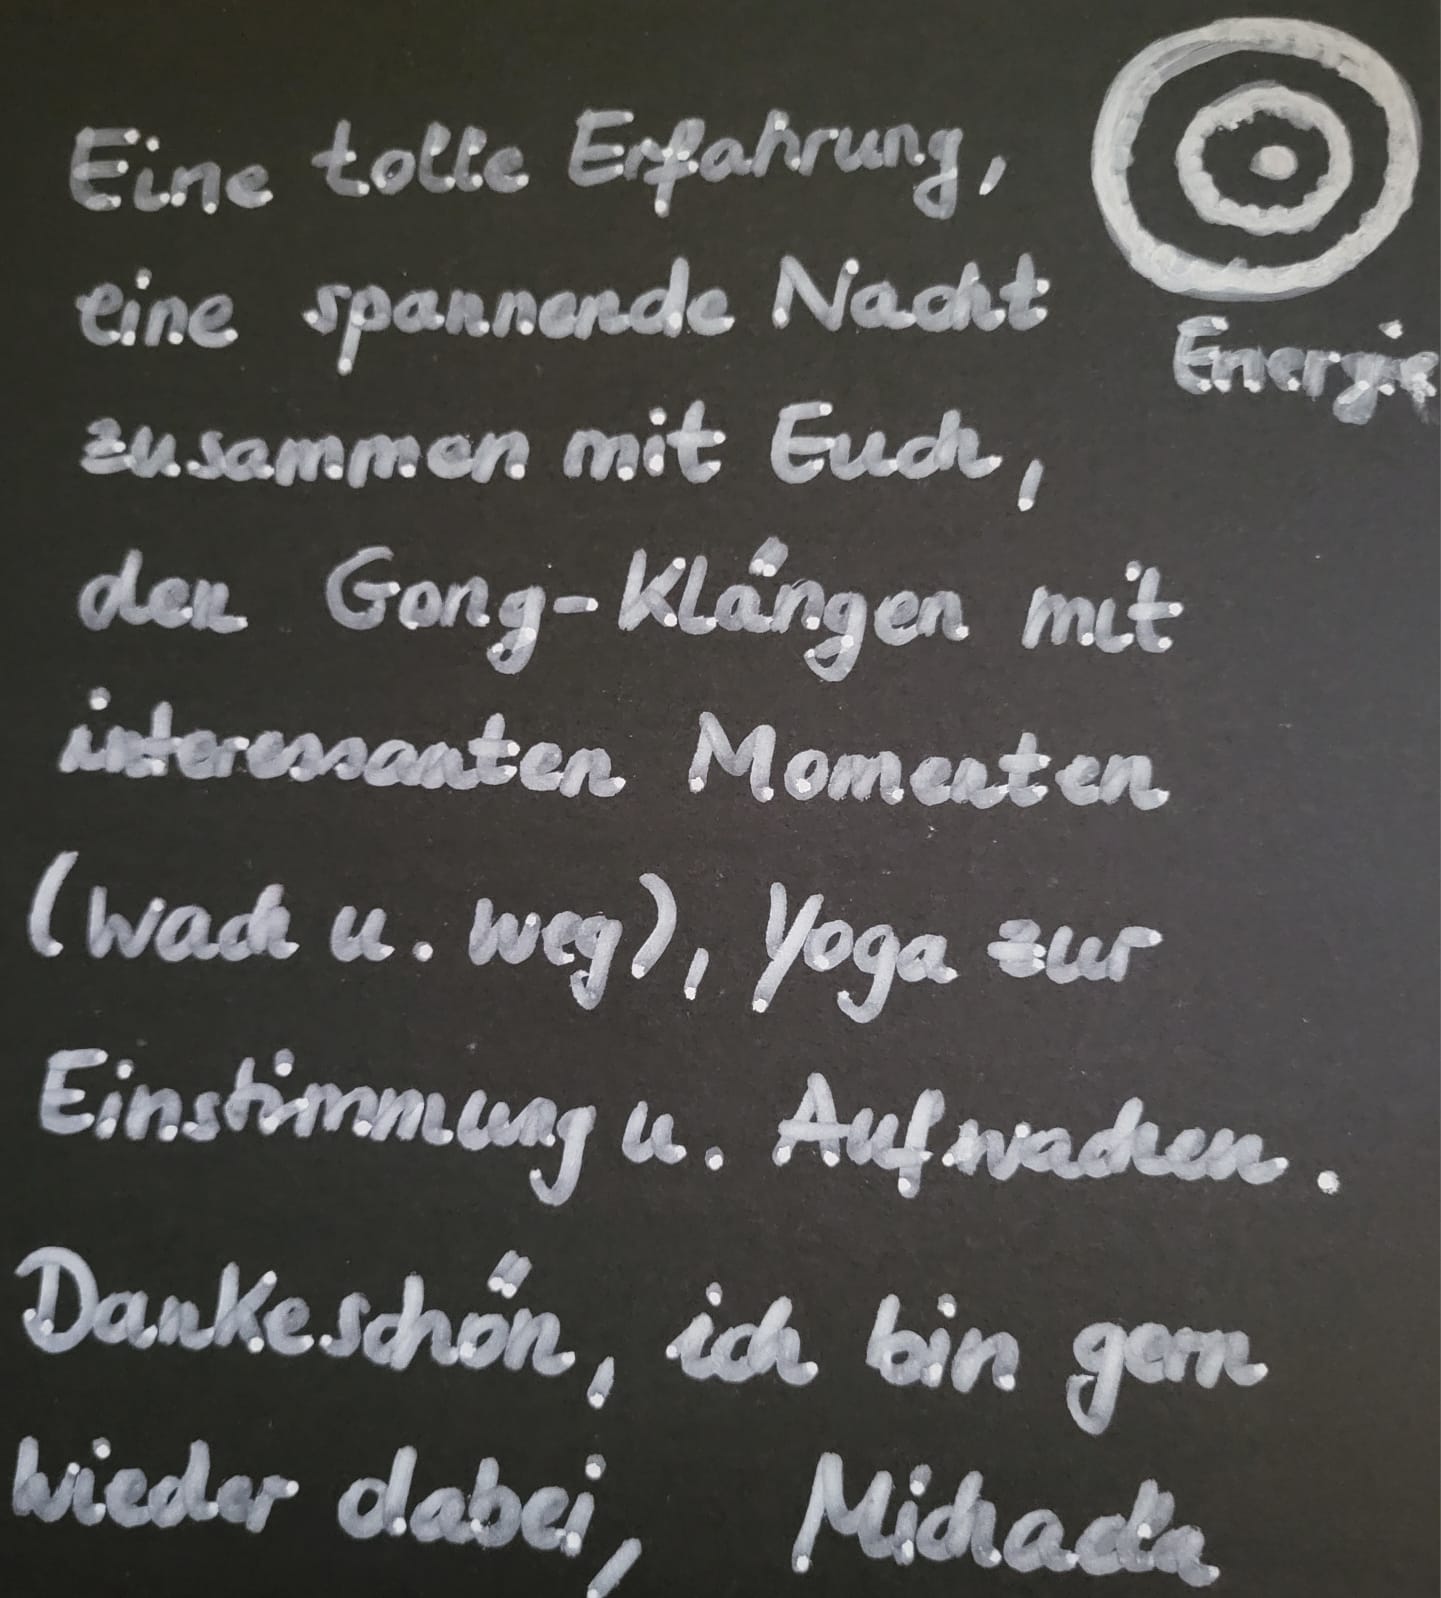 Eine tolle Erfahrung,
eine spannende Nacht
Energie
zusammen mit Euch,
den Gong-Klängen mit
interessanten Momenten
(wach u. weg), Yoga zur
Einstimmung u. Aufwachen.
Dankeschön, ich bin gern
wieder dabei, Michaela